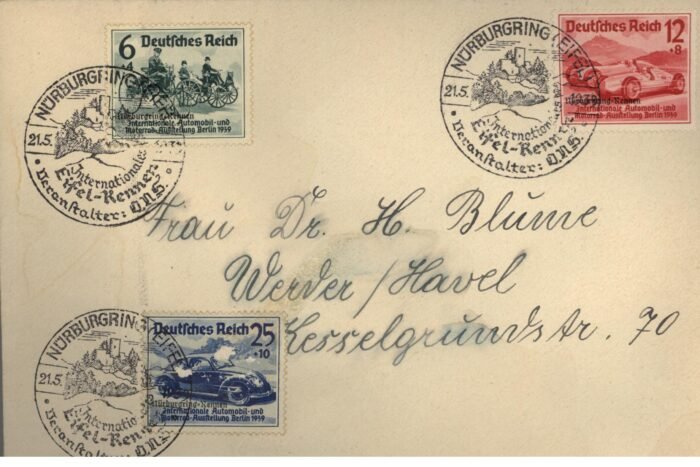 6 Deutsches Reich
+4
Nürburgring-Rennen
Internationale Automobil-und
Motorrad-Ausstellung Berlin 1939
NÜRBURGRING (EIFEL)
21.5.
Internationales
Eifel-Rennen
Veranstalter: O.N.S.
Deutsches Reich 12
+8
Nürburgring-Rennen
Internationale Automobil-und
Motorrad-Ausstellung Berlin 1939
NÜRBURGRING (EIFEL)
21.5. 1939
Internationales
Eifel-Rennen
Veranstalter: O.N.S.
Frau Dr. H. Blume
Werder/Havel
Kesselgrundstr. 70
Deutsches Reich 25
+10
Nürburgring-Rennen
Internationale Automobil-und
Motorrad-Ausstellung Berlin 1939
NÜRBURGRING (EIFEL)
21.5.
Internationales
Eifel-Rennen
Veranstalter: O.N.S.